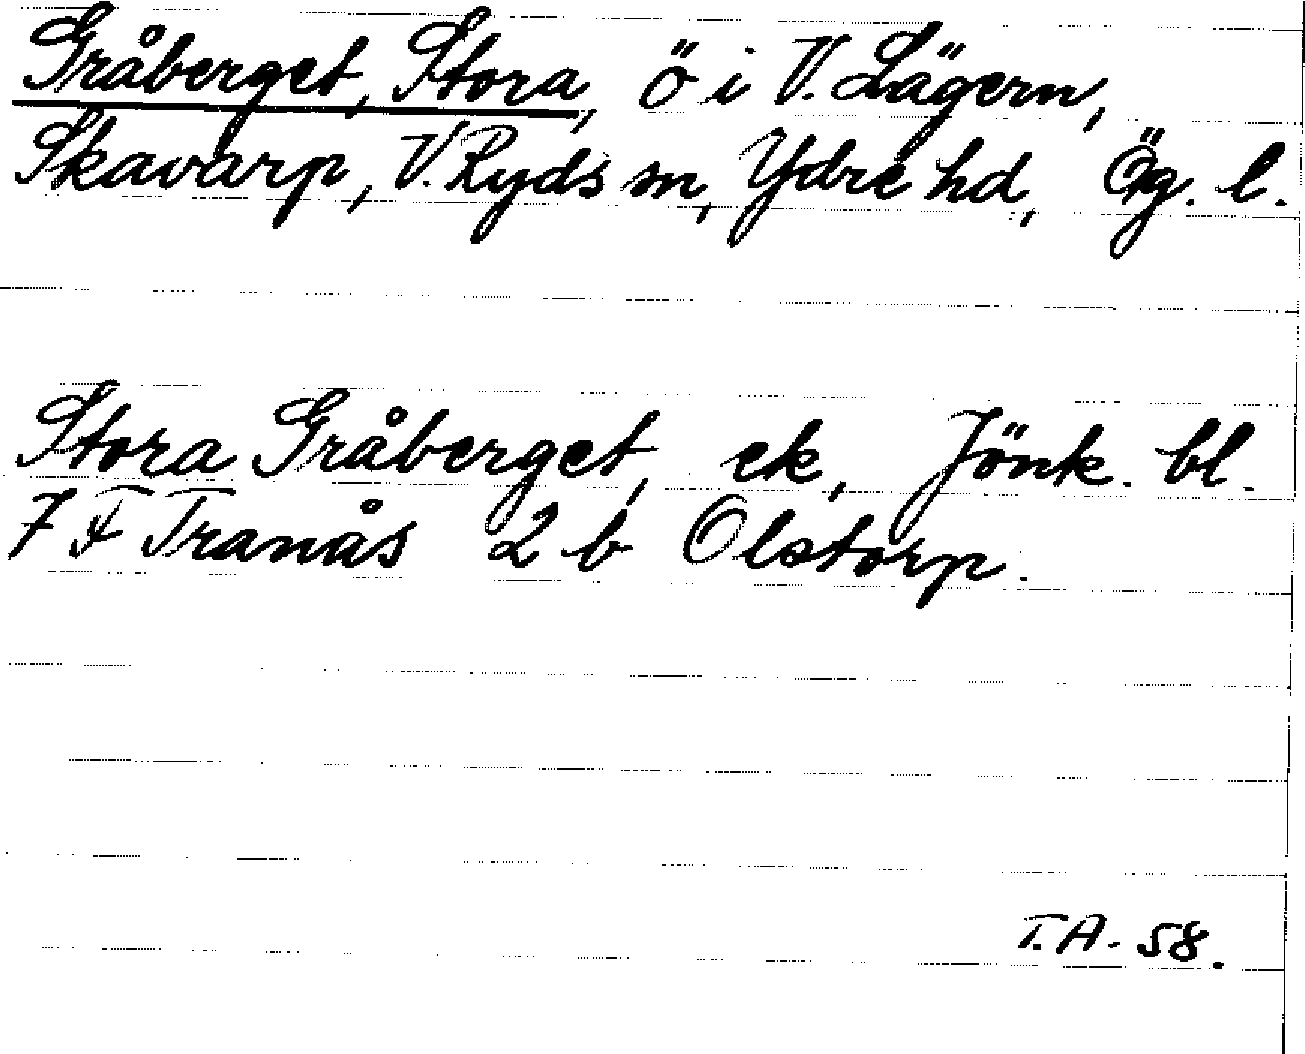 Gråberget, Stora, ö i V. Lägern,
Skavarp, V. Ryds sn, Ydre hd, Ög. l.
Stora Gråberget, ek, Jönk. bl.
7 F Tranås 2 b Olstorp.
T.A. 58.